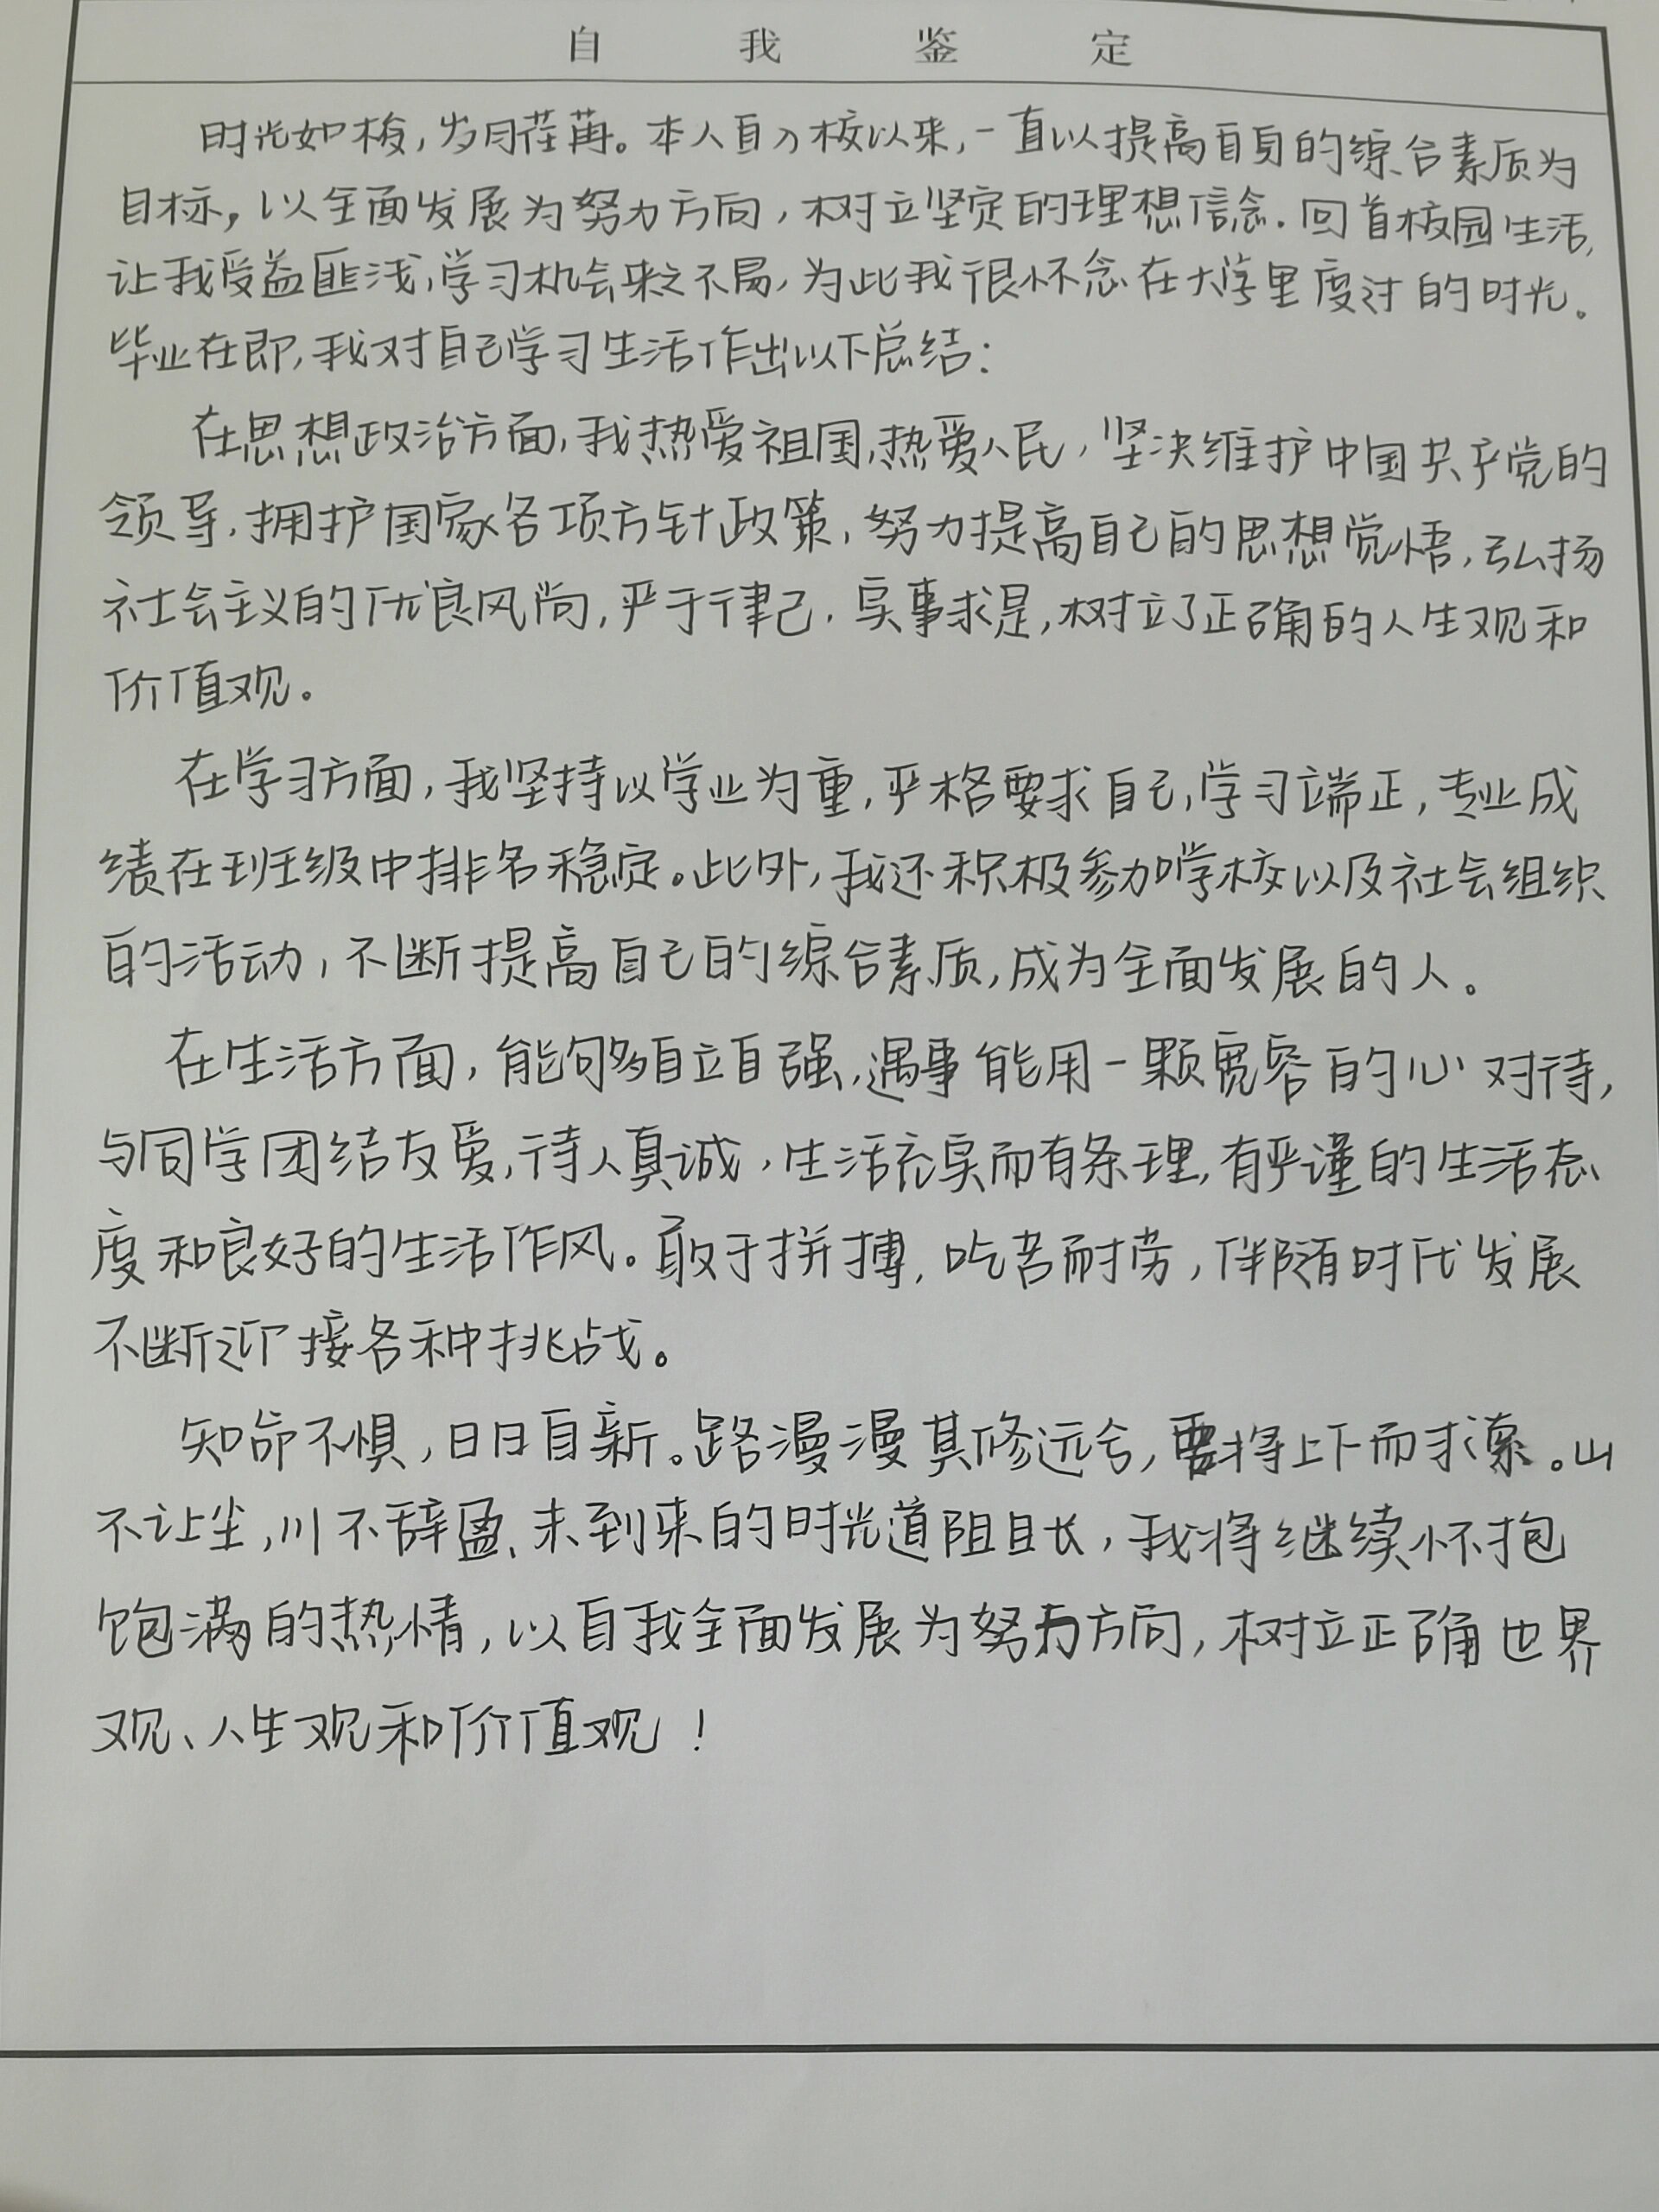 自我鉴定
时光如梭,岁月荏苒。本人自入校以来,一直以提高自身的综合素质为
目标,以全面发展为努力方向,树立坚定的理想信念.回首校园生活,
让我受益匪浅,学习机会来之不易,为此我很怀念在大学里度过的时光。
毕业在即,我对自己学习生活作出以下总结:
在思想政治方面,我热爱祖国,热爱人民,坚决维护中国共产党的
领导,拥护国家各项方针政策,努力提高自己的思想觉悟,弘扬
社会主义的优良风尚,严于律己.实事求是,树立了正确的人生观和
价值观.
在学习方面,我坚持以学业为重,严格要求自己,学习端正,专业成
绩在班级中排名稳定。此外,我还积极参加学校以及社会组织
的活动,不断提高自己的综合素质,成为全面发展的人。
在生活方面,能够自立自强,遇事能用一颗宽容的心对待,
与同学团结友爱,待人真诚,生活充实而有条理,有严谨的生活态
度和良好的生活作风。敢于拼搏,吃苦耐劳,伴随时代发展
不断迎接各种挑战。
知命不惧,日日自新。路漫漫其修远兮,要将上下而求索。山
不让尘,川不辞盈、未到来的时光道阻且长,我将继续怀抱
饱满的热情,以自我全面发展为努力方向,树立正确世界
观、人生观和价值观!